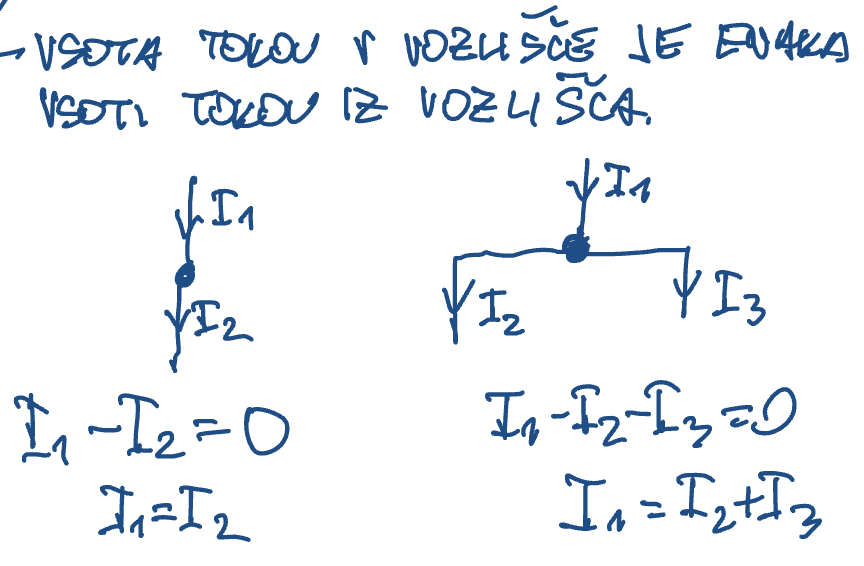 → VSOTA TOKOV V VOZLIŠČE JE ENAKA
VSOTI TOKOV IZ VOZLIŠČA.
I₁
I₂
I₁
I₂
I₃
I₁ - I₂ = 0
I₁ = I₂
I₁ - I₂ - I₃ = 0
I₁ = I₂ + I₃